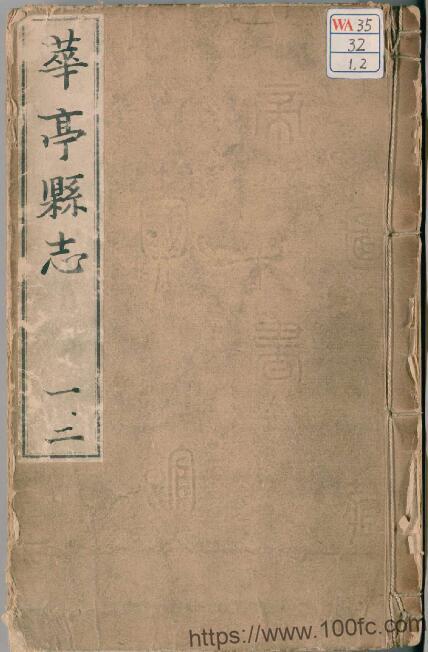 華亭縣志
一、二
WA 35
32
1,2
https://www.100fc.com